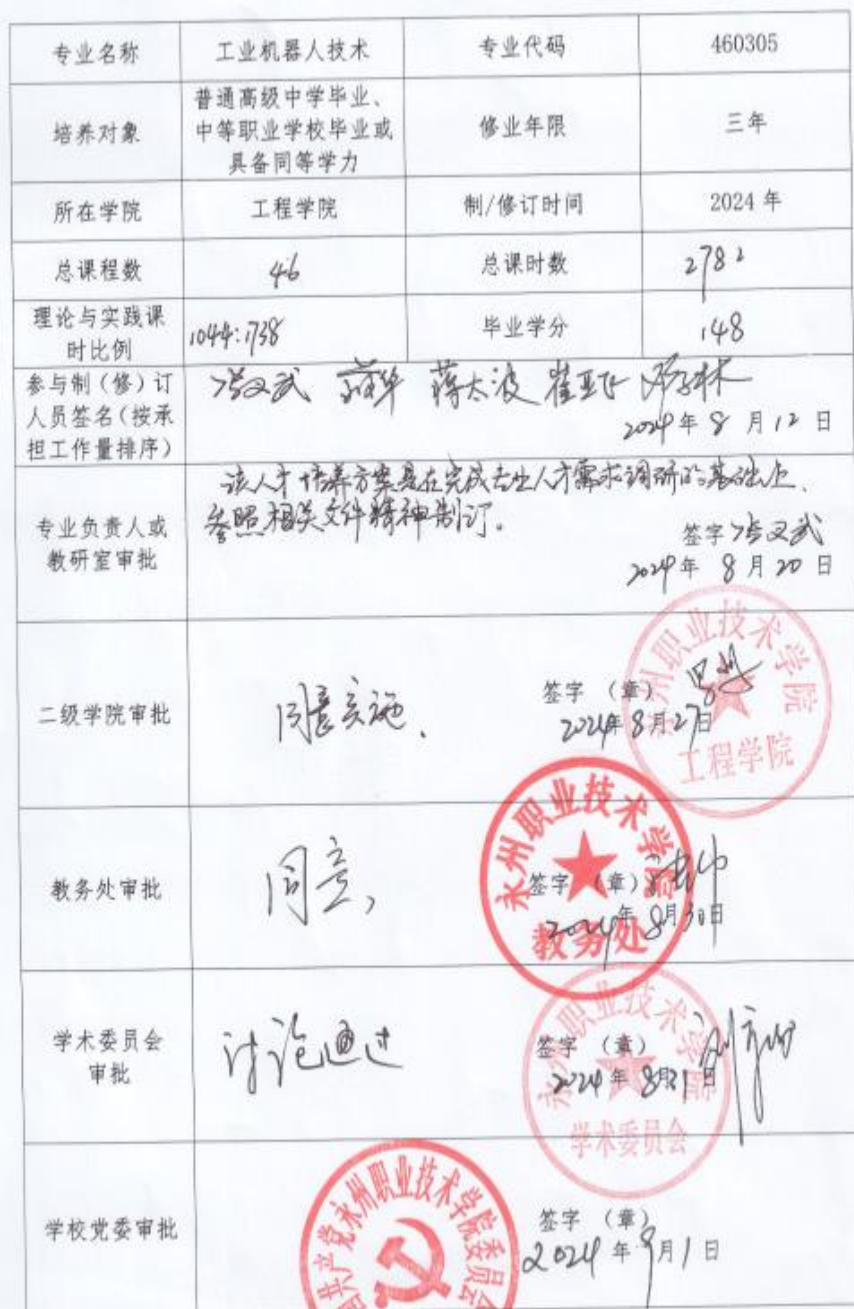 专业名称 工业机器人技术 专业代码 460305
培养对象 普通高级中学毕业、
中等职业学校毕业或
具备同等学力 修业年限 三年
所在学院 工程学院 制/修订时间 2024 年
总课程数 46 总课时数 2782
理论与实践课
时比例 1044:1738 毕业学分 148
参与制（修）订
人员签名（按承
担工作量排序） 蒋太波 崔亚飞
2024 年 8 月 12 日
专业负责人或
教研室审批 该人才培养方案是在完成专业人才需求调研的基础上，
参照相关文件精神制订。
签字
2024 年 8 月 20 日
二级学院审批 同意实施.
签字 （章）
2024年 8月27日
永州职业技术学院
工程学院
教务处审批 同意,
签字 （章）
2024年 8月30日
永州职业技术学院
教务处
学术委员会
审批 讨论通过
签字 （章）
2024 年 8月31日
永州职业技术学院
学术委员会
学校党委审批
签字 （章）
2024 年 9月1日
国共产党永州职业技术学院委员会